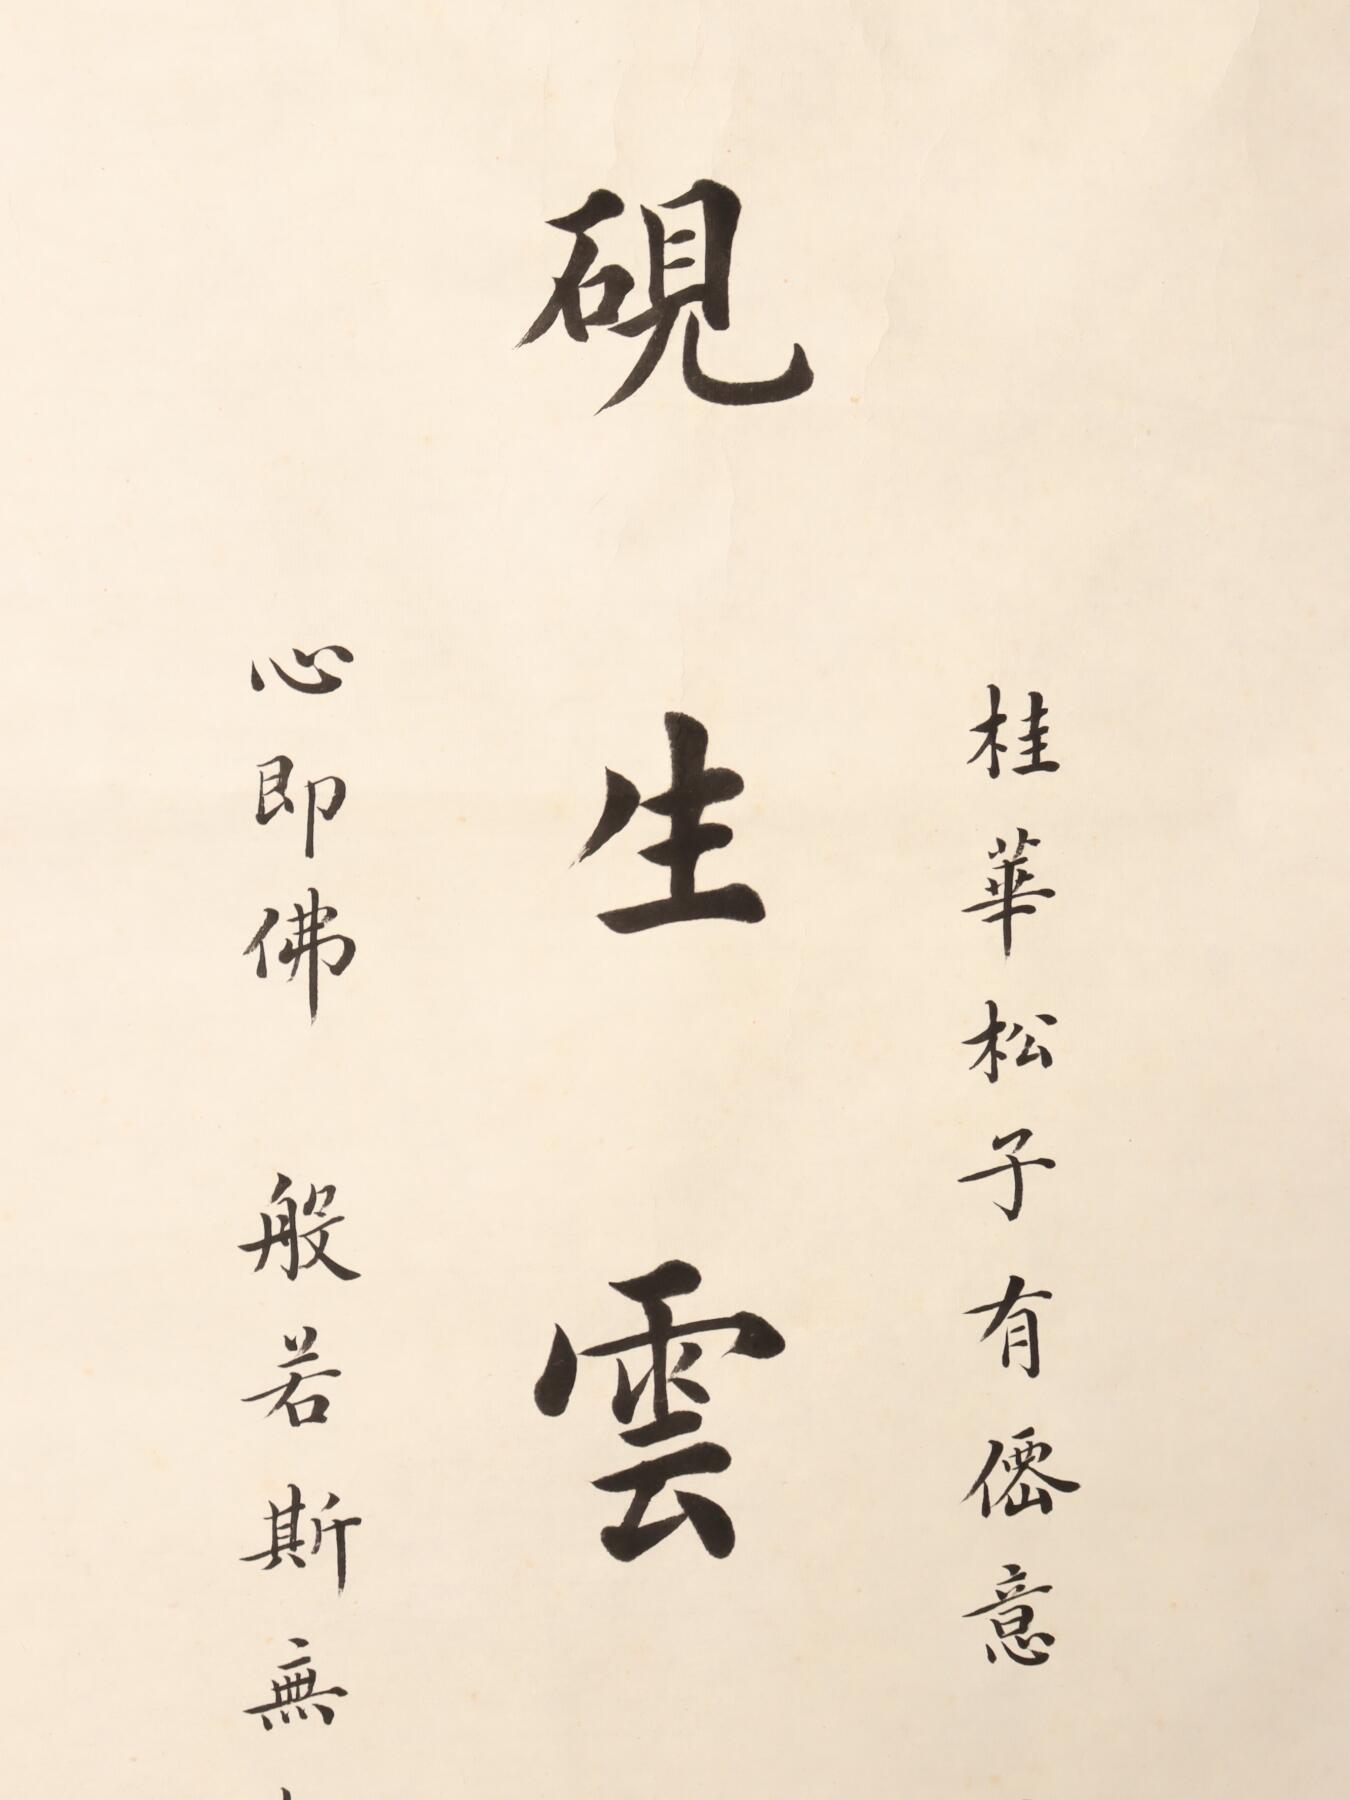 桂華松子有僊意
硯生雲
心即佛 般若斯無